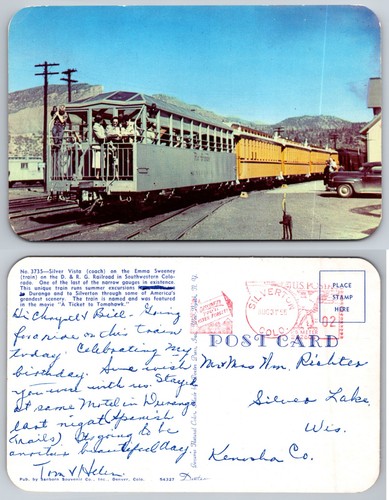 Silver Vista
No. 3733—Silver Vista (coach) on the Emma Sweeney
(train) on the D. & R. G. Railroad in Southwestern Colo-
rado. One of the last of the narrow gauges in existence.
This unique train runs summer excursions
Durango and to Silverton through some of America's
grandest scenery. The train is named and was featured
in the movie "A Ticket to Tomahawk."
Hi Chayst & Bill- Going
for a ride on this train
today. Celebrating my
birthday. Sure wish
you were with us. Stayed
at same Motel in Durango
last night (Spanish
Trails). Its going to be
another beautiful day
Tom & Helen
Pub. by Sanborn Souvenir Co., Inc., Denver, Colo.
54327
SILVERTON
AUG 27 '58
COLO.
U.S. POSTAGE
02
METER
PLACE
STAMP
HERE
POST CARD
Mr & Mrs Wm. Richter
Silver Lake,
Wis.
Kenosha Co.